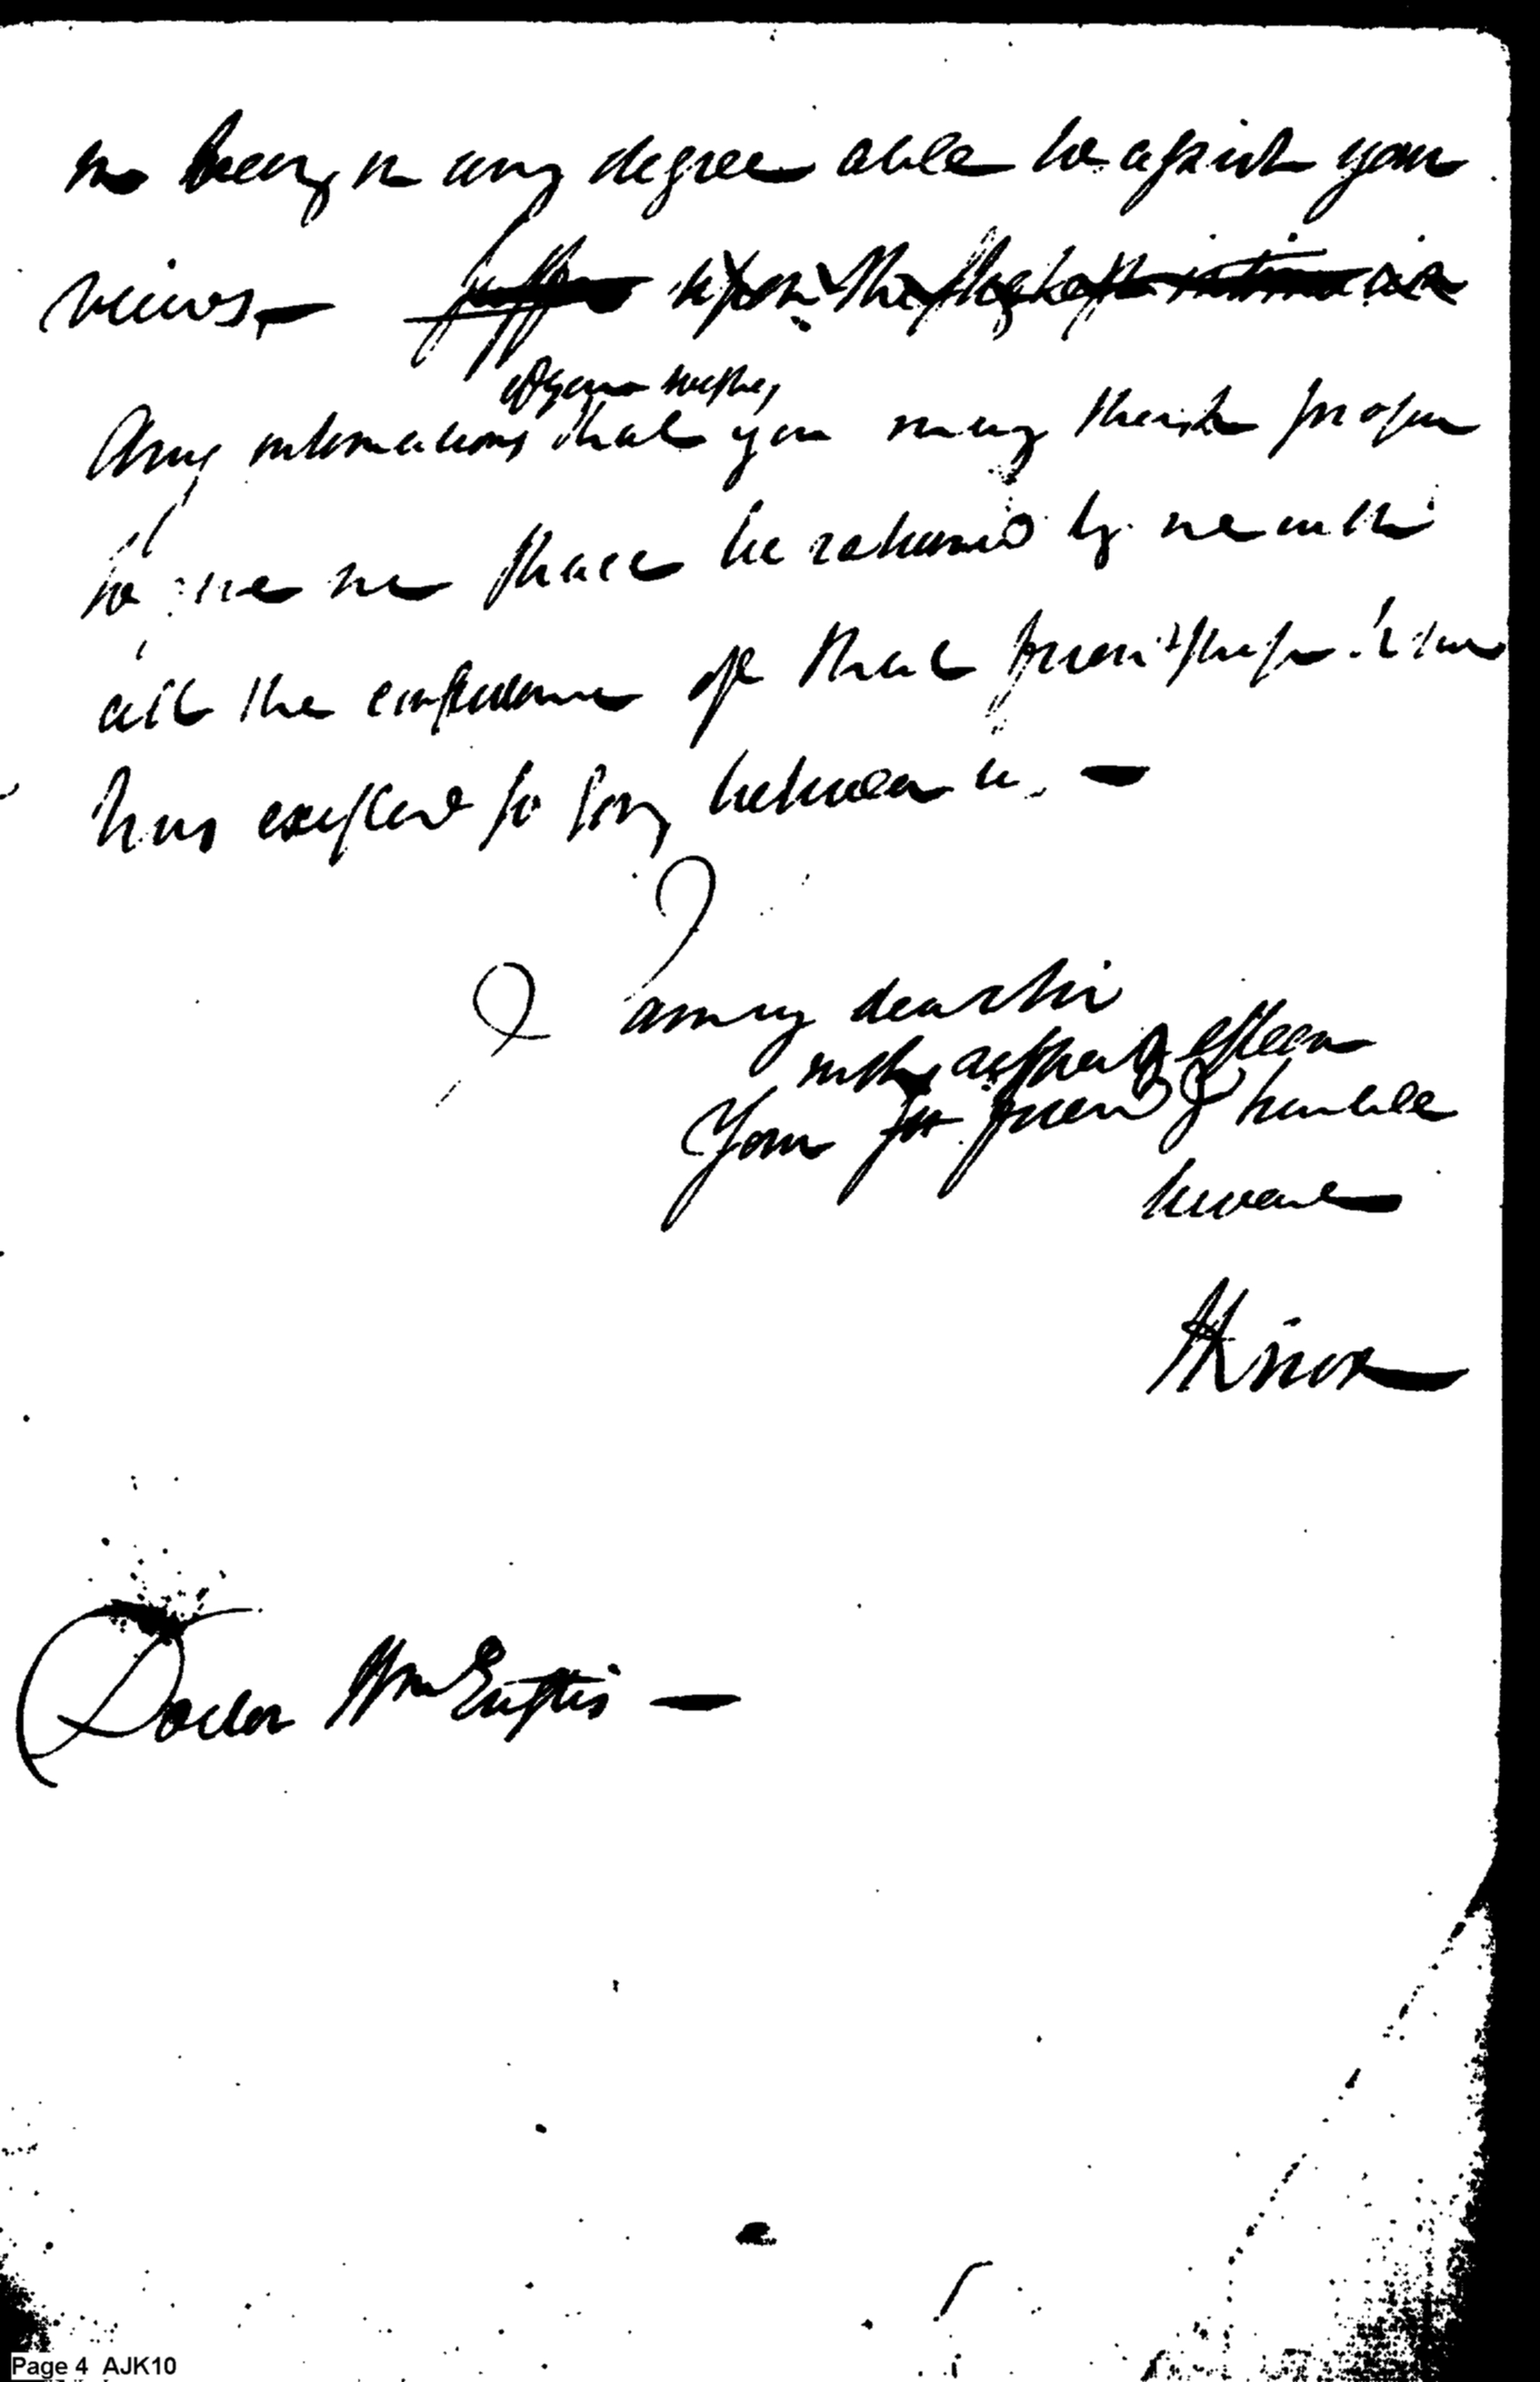 being in any degree able to assist your
views —
of your wishes
Any intimations that you may think proper
to me shall be returned by me with
all the confidence of that friendship
has existed so long between us. —
I am my dear Sir
with respect & esteem
Your friend & humble
servant
HKnox
Doctor Wm Eustis —
Page 4 AJK10